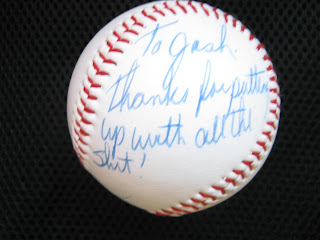 To Josh.
Thanks for putting
up with all the
shit!